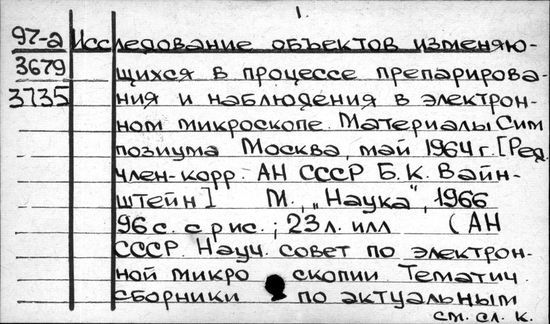 1.
97-а Исследование объектов изменяю-
3679 щихся в процессе препарирова-
3735 ния и наблюдения в электрон-
ном микроскопе. Материалы Сим
позиума Москва, май 1964 г. [Ред.
член-корр. АН СССР Б. К. Вайн-
штейн] М., „Наука", 1966
96 с. с рис.; 23 л. илл (АН
СССР. Науч. совет по электрон-
ной микро скопии Тематич.
сборники по актуальным
см. сл. к.